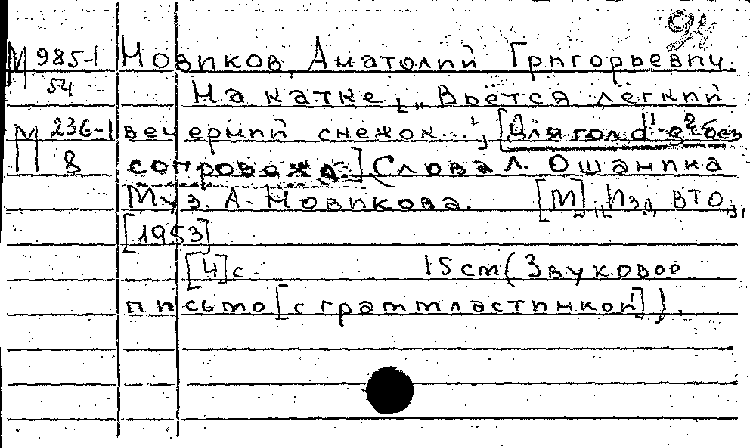 М 985-1 Новиков, Анатолий Григорьевич.
54 На катке. „Вьётся легкий
М 236-1 вечерний снежок...", [Для гол. d¹-g² без
8 сопровожд.] (Слова Л. Ошанина
Муз. А. Новикова. [М], Изд. ВТО,
[1953]
[4] с. 15 см (Звуковое
письмо [с грампластинкой]).